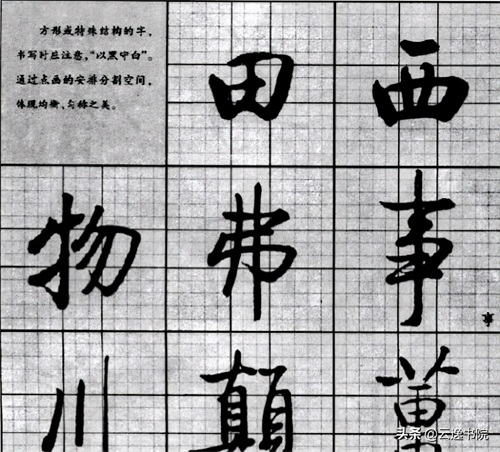 方形或特殊结构的字，
书写时应注意，“以黑守白”。
通过点画的安排分割空间，
体现均衡、匀称之美。
田 西
物 弗 事
川 顛 萬
头条 @云逸书院